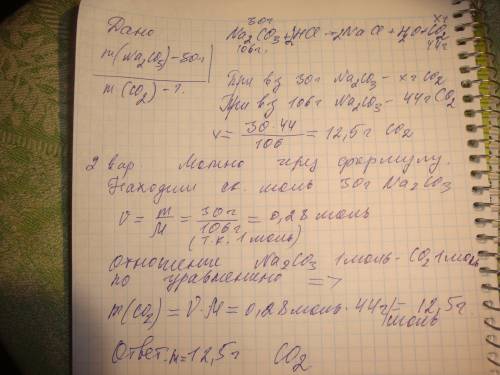 Дано
30г хг
Na₂CO₃+2HCl→2NaCl+H₂O+CO₂
106г. 44г
m(Na₂CO₃)-30г
m(CO₂)-?
При вз 30г Na₂CO₃ - хг CO₂
При вз 106г Na₂CO₃ - 44г CO₂
x = 30·44/106 = 12,5г CO₂
2 вар Можно через формулу.
Находим ск. моль 30г Na₂CO₃
V = m/M = 30г/106г = 0,28 моль
(т.к. 1 моль)
Отношение Na₂CO₃ 1моль - CO₂ 1моль
по уравнению =>
m(CO₂) = V·M = 0,28 моль · 44г/1моль = 12,5г
Ответ: m=12,5г CO₂